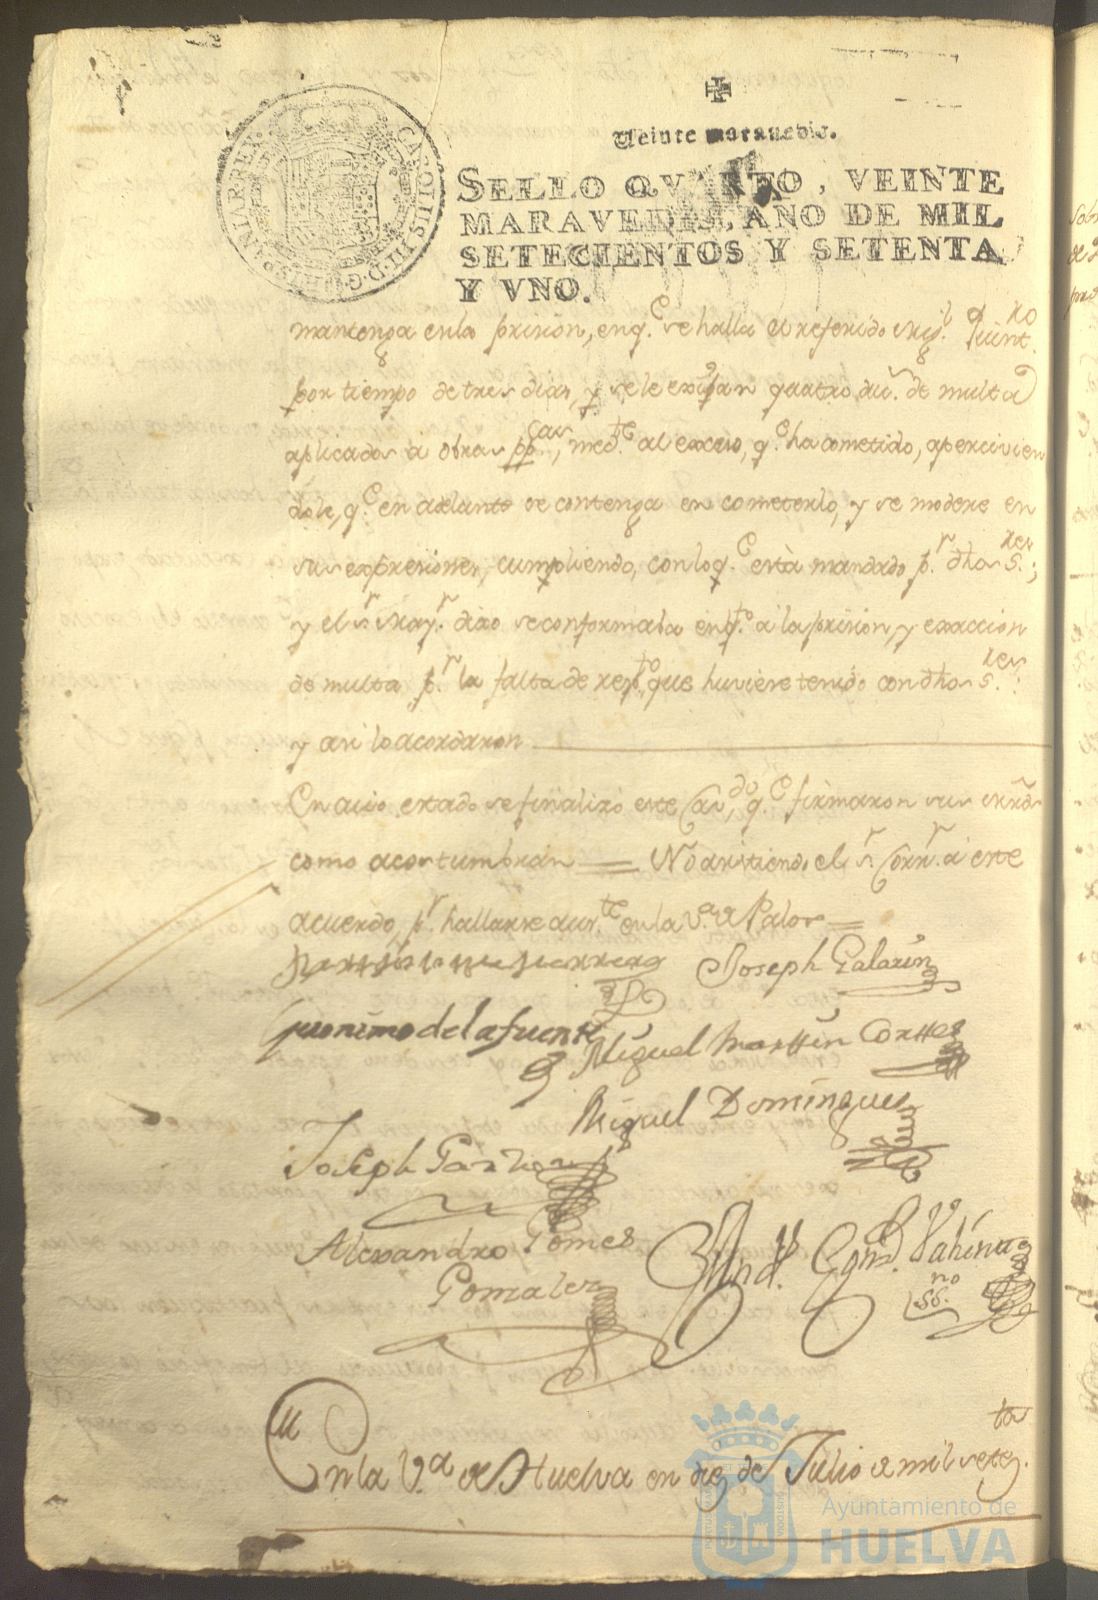 Veinte marauedis.
SELLO QVARTO, VEINTE
MARAVEDIS, AÑO DE MIL
SETECIENTOS Y SETENTA
Y VNO.
CAROLUS III D G HISPANIAR REX
mantenga en la prision, en q.e se halla el referido Mig.l Quint.ro
por tiempo de tres dias, y se le exijan quatro du.s de multa
aplicados à obras pp.cas, med.te al exceso, q.e ha cometido, apercivien
dole, q.e en adelante se contenga en cometerlo, y se modere en
sus expresiones, cumpliendo, con lo q.e està mandado p.r dhos S.res;
y el s.r May.r dixo se conformaba en q.to a la prision, y exaccion
de multa p.r la falta de resp.to, que huviere tenido con dhos S.res:
y asi lo acordaron
En cuio estado se finalizó este Cav.do, q.e firmaron sus mrds
como acostumbran = No asistiendo el s.r Corr.r a este
acuerdo, p.r hallarse aus.te en la V.a de Palos =
Joseph Galarin
Geronimo de la fuente
Miguel Martin Corttes
Miguel Dominguez
Joseph Garzon
Alexandro Gomes
Gonzalez
ss.no
En la V.a de Huelva en diez de Julio de mil sete.tos
Ayuntamiento de
HUELVA